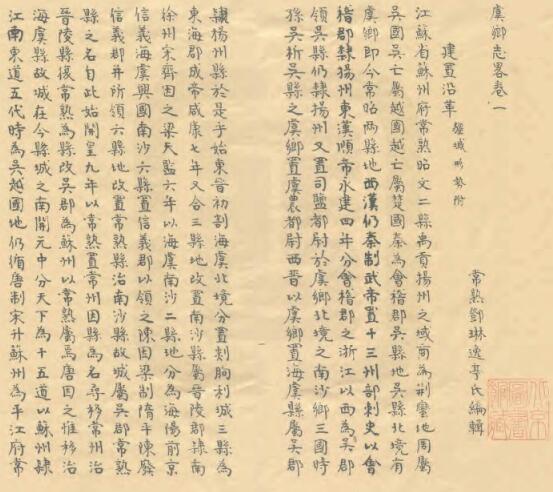 虞鄉志畧卷一
常熟鄧琳逸亭氏編輯
建置沿革 疆域形勢附
江蘇省蘇州府常熟昭文二縣禹貢揚州之域商為荆蠻地周屬
吳國吳亡屬越國越亡屬楚國秦為會稽郡吳縣地吳縣北境有
虞鄉即今常昭两縣地西漢仍秦制武帝置十三州部刺史以會
稽郡隸揚州東漢順帝永建四年分會稽郡之浙江以西為吳郡
領吳縣仍隸揚州又置司鹽都尉於虞鄉北境之南沙鄉三國時
孫吳析吳縣之虞鄉置虞農都尉西晉以虞鄉置海虞縣屬吳郡
隸揚州縣於是乎始東晉初割海虞北境分置剡朐利城三縣為
東海郡成帝咸康七年又合三縣地改置南沙縣屬晉陵郡隸南
徐州宋齊因之梁天監六年以海虞南沙二縣地分為海陽前京
信義海虞興國南沙六縣置信義郡以領之陳因梁制隋平陳廢
信義郡并所領六縣地改置常熟縣治南沙縣故城屬吳郡常熟
縣之名自此始開皇九年以常熟置常州因縣為名尋移常州治
晉陵縣後常熟為縣改吳郡為蘇州以常熟屬焉唐因之惟移治
海虞縣故城在今縣城之南開元中分天下為十五道以蘇州隸
江南東道五代時為吳越國地仍循唐制宋升蘇州為平江府常